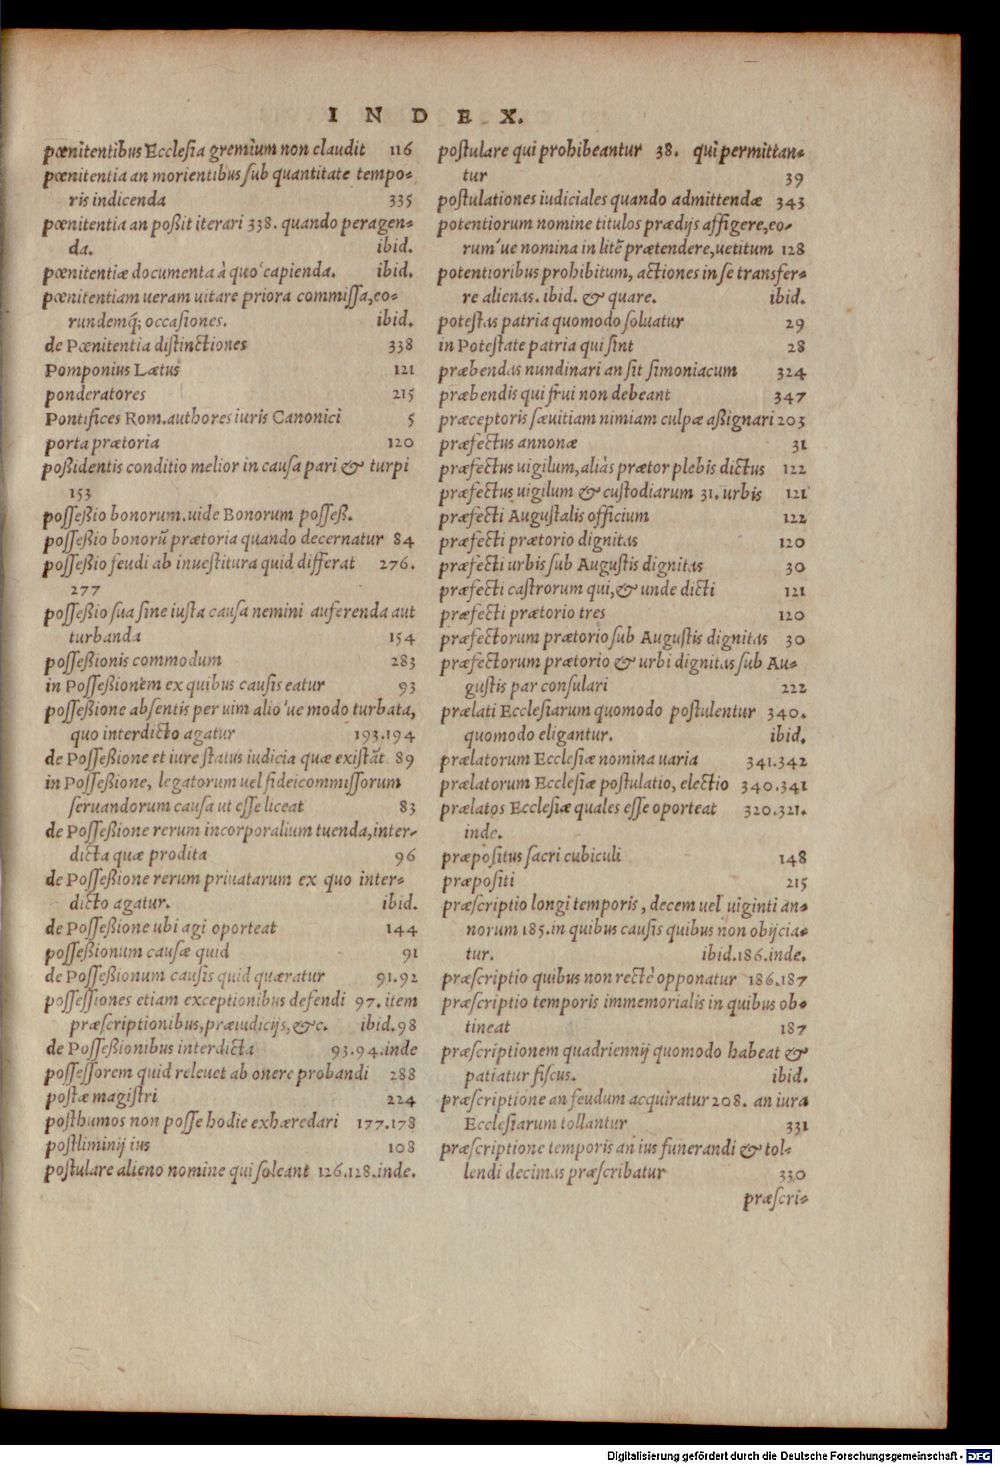 INDEX.
pœnitentibus Ecclesia gremium non claudit 116
pœnitentia an morientibus sub quantitate tempo-
ris indicenda 335
pœnitentia an poßit iterari 338. quando peragen-
da. ibid.
pœnitentiæ documenta à quo capienda. ibid.
pœnitentiam ueram uitare priora commissa, eo-
rundemq́; occasiones. ibid.
de Pœnitentia distinctiones 338
Pomponius Lætus 121
ponderatores 215
Pontifices Rom. authores iuris Canonici 5
porta prætoria 120
poßidentis conditio melior in causa pari & turpi
153
posseßio bonorum. uide Bonorum posseß.
posseßio bonorū prætoria quando decernatur 84
posseßio feudi ab inuestitura quid differat 276.
277
posseßio sua sine iusta causa nemini auferenda aut
turbanda 154
posseßionis commodum 283
in Posseßionem ex quibus causis eatur 93
posseßione absentis per uim alio´ue modo turbata,
quo interdicto agatur 193.194
de Posseßione et iure status iudicia quæ existāt 89
in Posseßione, legatorum uel fideicommissorum
seruandorum causa ut esse liceat 83
de Posseßione rerum incorporalium tuenda, inter-
dicta quæ prodita 96
de Posseßione rerum priuatarum ex quo inter-
dicto agatur. ibid.
de Posseßione ubi agi oporteat 144
posseßionum causæ quid 91
de Posseßionum causis quid quæratur 91.92
possessiones etiam exceptionibus defendi 97. item
præscriptionibus, præiudicijs, &c. ibid. 98
de Posseßionibus interdicta 93.94. inde
possessorem quid releuet ab onere probandi 288
postæ magistri 224
posthumos non posse hodie exhæredari 177.178
postliminij ius 108
postulare alieno nomine qui soleant 126.128. inde.
postulare qui prohibeantur 38. qui permittan-
tur 39
postulationes iudiciales quando admittendæ 343
potentiorum nomine titulos prædijs affigere, eo-
rum´ue nomina in litē prætendere, uetitum 128
potentioribus prohibitum, actiones in se transfer-
re alienas. ibid. & quare. ibid.
potestas patria quomodo soluatur 29
in Potestate patria qui sint 28
præbendas nundinari an sit simoniacum 324
præbendis qui frui non debeant 347
præceptoris sæuitiam nimiam culpæ aßignari 203
præfectus annonæ 31
præfectus uigilum, aliàs prætor plebis dictus 122
præfectus uigilum & custodiarum 31. urbis 121
præfecti Augustalis officium 122
præfecti prætorio dignitas 120
præfecti urbis sub Augustis dignitas 30
præfecti castrorum qui, & unde dicti 121
præfecti prætorio tres 120
præfectorum prætorio sub Augustis dignitas 30
præfectorum prætorio & urbi dignitas sub Au-
gustis par consulari 222
prælati Ecclesiarum quomodo postulentur 340.
quomodo eligantur. ibid.
prælatorum Ecclesiæ nomina uaria 341.342
prælatorum Ecclesiæ postulatio, electio 340.341
prælatos Ecclesiæ quales esse oporteat 320.321.
inde.
præpositus sacri cubiculi 148
præpositi 215
præscriptio longi temporis, decem uel uiginti an-
norum 185. in quibus causis quibus non obijcia-
tur. ibid. 186. inde.
præscriptio quibus non rectè opponatur 186.187
præscriptio temporis immemorialis in quibus ob-
tineat 187
præscriptionem quadriennij quomodo habeat &
patiatur fiscus. ibid.
præscriptione an feudum acquiratur 208. an iura
Ecclesiarum tollantur 331
præscriptione temporis an ius funerandi & tol-
lendi decimas præscribatur 330
præscri-
Digitalisierung gefördert durch die Deutsche Forschungsgemeinschaft - DFG